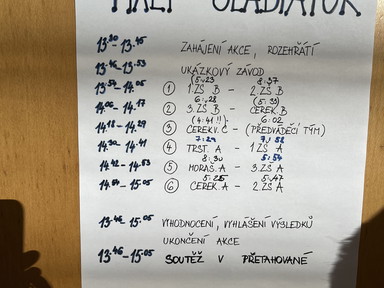 MALÝ GLADIÁTOR
13.30 - 13.45 ZAHÁJENÍ AKCE, ROZEHŘÁTÍ
13.46 - 13.53 UKÁZKOVÝ ZÁVOD
(5:23) 8:37
13.54 - 14.05 ① 1.ZŠ B - 2.ZŠ B
6:28 (5:33)
14.06 - 14.17 ② 3.ZŠ B - ČEREK. B
(4:41!!) 6:02
14.18 - 14.29 ③ ČEREKV. C - (PŘEDVÁDĚCÍ TÝM)
7:29 7:58
14.30 - 14.41 ④ TRST. A - 1.ZŠ A
8:30 5:57
14.42 - 14.53 ⑤ MORAŠ. A - 3.ZŠ A
5:25 5:47
14.54 - 15.05 ⑥ ČEREK. A - 2.ZŠ A
13.46 - 15.05 VYHODNOCENÍ, VYHLÁŠENÍ VÝSLEDKŮ
UKONČENÍ AKCE
13.46 - 15.05 SOUTĚŽ V PŘETAHOVANÉ